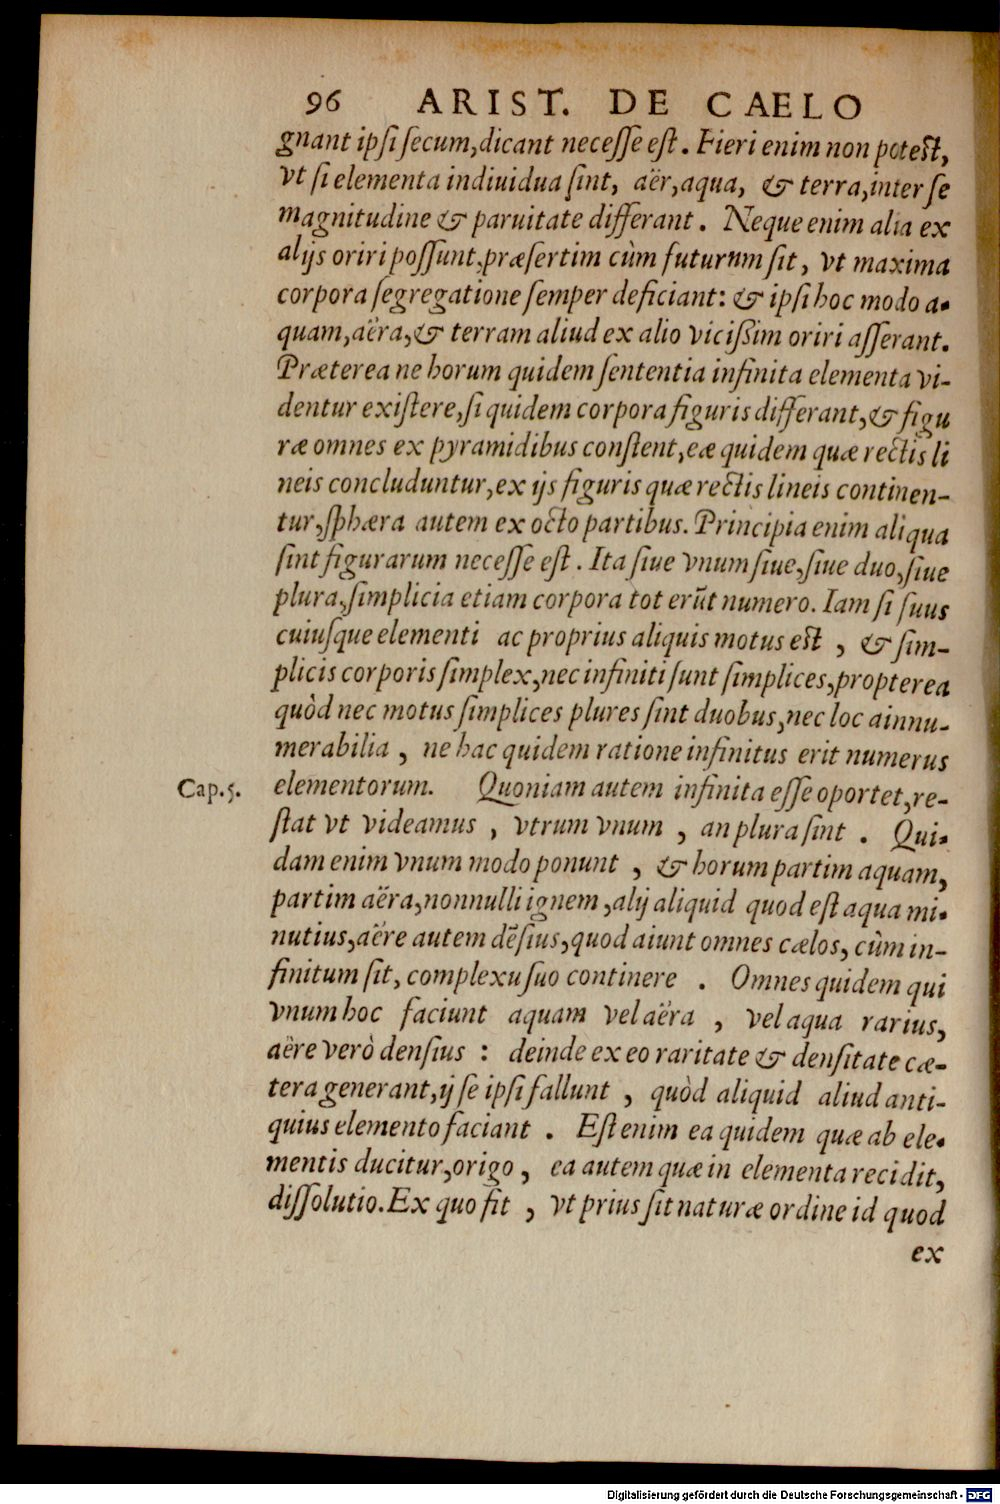 96 ARIST. DE CAELO
gnant ipſi ſecum, dicant neceſſe eſt. Fieri enim non poteſt,
vt ſi elementa indiuidua ſint, aër, aqua, & terra, inter ſe
magnitudine & paruitate differant. Neque enim alia ex
alijs oriri poſſunt, præſertim cùm futurum ſit, vt maxima
corpora ſegregatione ſemper deficiant: & ipſi hoc modo a-
quam, aëra, & terram aliud ex alio viciſsim oriri aſſerant.
Præterea ne horum quidem ſententia infinita elementa vi-
dentur exiſtere, ſi quidem corpora figuris differant, & figu
ræ omnes ex pyramidibus conſtent, eæ quidem quæ rectis li
neis concluduntur, ex ijs figuris quæ rectis lineis continen-
tur, ſphæra autem ex octo partibus. Principia enim aliqua
ſint figurarum neceſſe eſt. Ita ſiue vnum ſiue, ſiue duo, ſiue
plura, ſimplicia etiam corpora tot erũt numero. Iam ſi ſuus
cuiuſque elementi ac proprius aliquis motus eſt, & ſim-
plicis corporis ſimplex, nec infiniti ſunt ſimplices, propterea
quòd nec motus ſimplices plures ſint duobus, nec loc ainnu-
merabilia, ne hac quidem ratione infinitus erit numerus
Cap. 5. elementorum. Quoniam autem infinita eſſe oportet, re-
ſtat vt videamus, vtrum vnum, an plura ſint. Qui-
dam enim vnum modo ponunt, & horum partim aquam,
partim aëra, nonnulli ignem, alij aliquid quod eſt aqua mi-
nutius, aëre autem dẽſius, quod aiunt omnes cælos, cùm in-
finitum ſit, complexu ſuo continere. Omnes quidem qui
vnum hoc faciunt aquam vel aëra, vel aqua rarius,
aëre verò denſius: deinde ex eo raritate & denſitate cæ-
tera generant, ij ſe ipſi fallunt, quòd aliquid aliud anti-
quius elemento faciant. Eſt enim ea quidem quæ ab ele-
mentis ducitur, origo, ea autem quæ in elementa recidit,
diſſolutio. Ex quo fit, vt prius ſit naturæ ordine id quod
ex
Digitalisierung gefördert durch die Deutsche Forschungsgemeinschaft - DFG